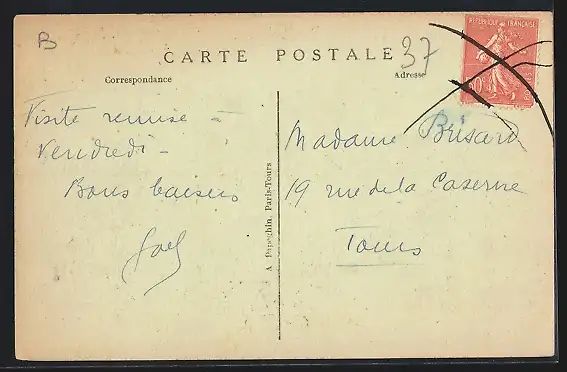 B
CARTE POSTALE
37
Correspondance
Adresse
RÉPUBLIQUE FRANÇAISE
Visite remise à
Vendredi -
Bons baisers
A. Papeghin, Paris-Tours
Madame Brisard
19 rue de la Caserne
Tours